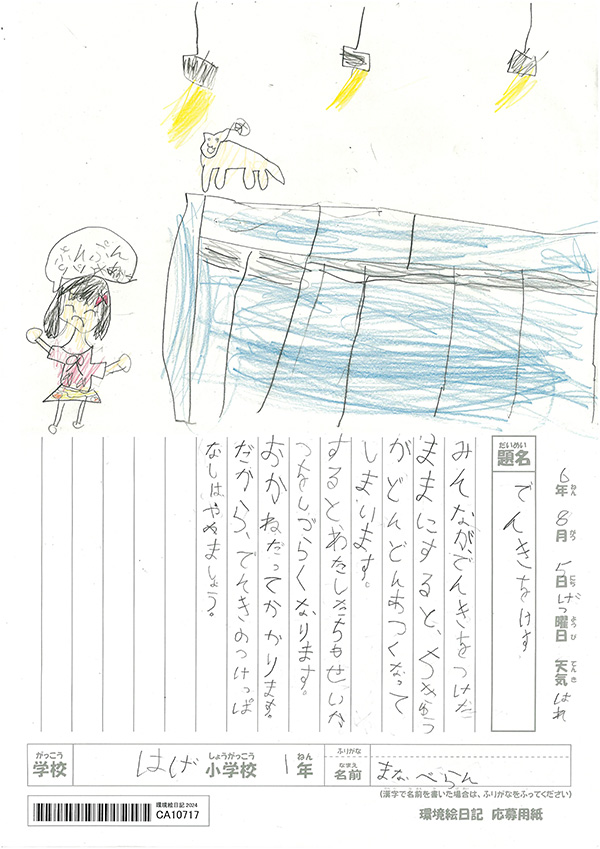 6年 8月 5日 げつ曜日 天気 はれ
ねん がつ にち ようび てんき
だいめい
題名 でんきをけす
みんなが、でんきをつけた
ままにすると、ちきゅう
がどんどんあつくなって
しまいます。
すると、わたしたちもせいか
つをしづらくなります。
おかねだってかかります。
だから、でんきのつけっぱ
なしはやめましょう。
がっこう しょうがっこう ねん ふりがな
学校 はげ 小学校 1年 なまえ 名前 まなべらん
(漢字で名前を書いた場合は、ふりがなをふってください)
環境絵日記2024
CA10717
環境絵日記 応募用紙